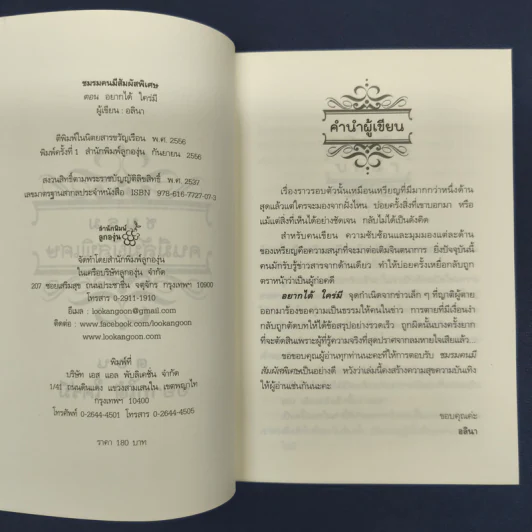 ชมรมคนมีสัมผัสพิเศษ
ตอน อยากได้ ใคร่มี
ผู้เขียน : อลินา
ตีพิมพ์ในนิตยสารขวัญเรือน พ.ศ. 2556
พิมพ์ครั้งที่ 1 สำนักพิมพ์ลูกองุ่น กันยายน 2556
สงวนลิขสิทธิ์ตามพระราชบัญญัติลิขสิทธิ์ พ.ศ. 2537
เลขมาตรฐานสากลประจำหนังสือ ISBN 978-616-7727-07-3
สำนักพิมพ์
ลูกองุ่น
จัดทำโดยสำนักพิมพ์ลูกองุ่น
ในเครือบริษัทลูกองุ่น จำกัด
207 ซอยเสริมสุข ถนนประชาชื่น จตุจักร กรุงเทพฯ 10900
โทรสาร 0-2911-1910
อีเมล : lookangoon@gmail.com
ติดต่อ : www.facebook.com/lookangoon
www.lookangoon.com
พิมพ์ที่
บริษัท เอส แอล พับลิเคชั่น จำกัด
1/41 ถนนดินแดง แขวงสามเสนใน เขตพญาไท
กรุงเทพฯ 10400
โทรศัพท์ 0-2644-4501 โทรสาร 0-2644-4505
ราคา 180 บาท
คำนำผู้เขียน
เรื่องราวรอบตัวนั้นเหมือนเหรียญที่มีมากกว่าหนึ่งด้าน
สุดแล้วแต่ใครจะมองจากฝั่งไหน บ่อยครั้งสิ่งที่เขาบอกมา หรือ
แม้แต่สิ่งที่เห็นได้อย่างชัดเจน กลับไม่ได้เป็นดังคิด
สำหรับคนเขียน ความซับซ้อนและมุมมองแต่ละด้าน
ของเหรียญคือความสนุกที่จะมาต่อเติมจินตนาการ ยิ่งปัจจุบันนี้
คนมักรับรู้ข่าวสารจากด้านเดียว ทำให้บ่อยครั้งเหยื่อกลับถูก
ตราหน้าว่าเป็นผู้ก่อคดี
อยากได้ ใคร่มี จุดกำเนิดจากข่าวเล็ก ๆ ที่ญาติผู้ตาย
ออกมาร้องขอความเป็นธรรมให้คนในข่าว การตายที่มีเงื่อนงำ
กลับถูกตัดบทให้ได้ข้อสรุปอย่างรวดเร็ว ถูกผิดนั้นบางครั้งยาก
ที่จะตัดสินเพราะผู้ที่รู้ความจริงที่สุดปราศจากลมหายใจเสียแล้ว...
ขอขอบคุณผู้อ่านทุกท่านนะคะที่ให้การตอบรับ ชมรมคนมี
สัมผัสพิเศษเป็นอย่างดี หวังว่าเล่มนี้คงสร้างความสุขความบันเทิง
ให้ผู้อ่านเช่นกันนะคะ
ขอบคุณค่ะ
อลินา